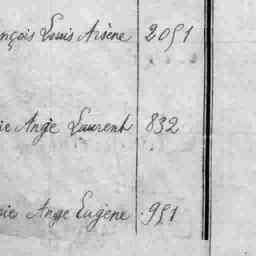 nçois Louis Arsène 2051
ie Ange Laurent 832
ie Ange Eugène 951